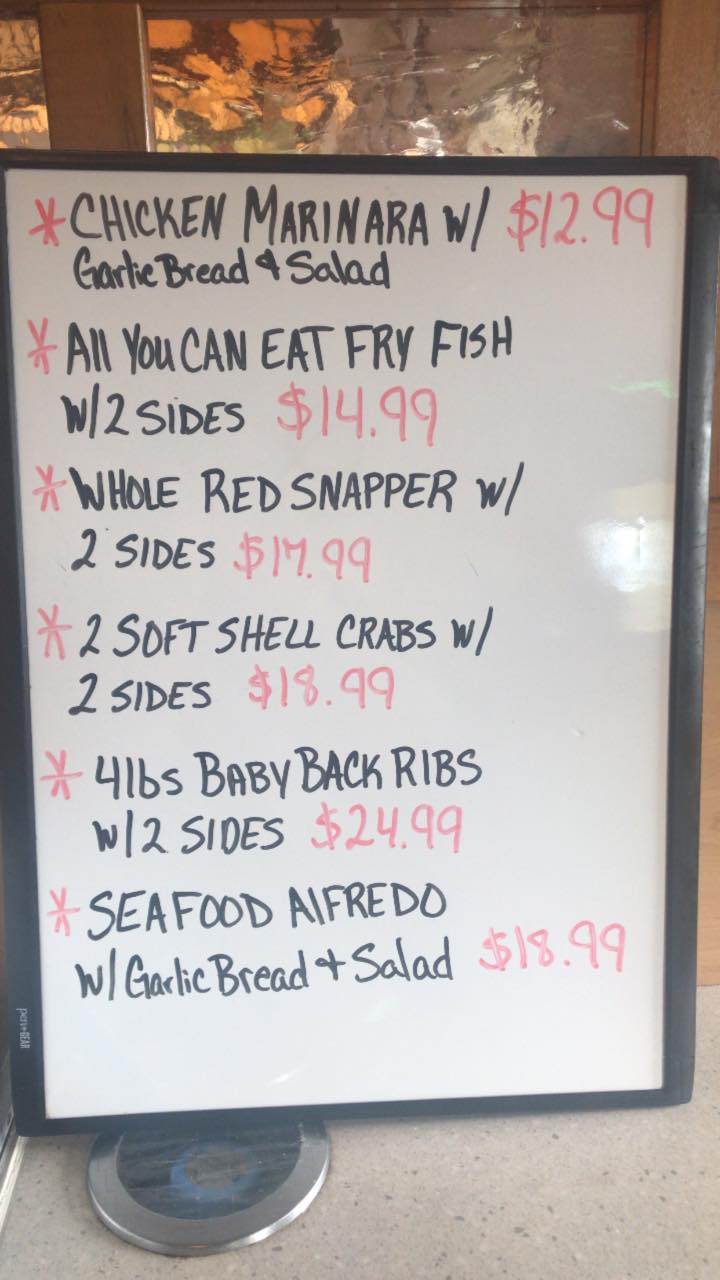 * CHICKEN MARINARA W/ $12.99
Garlic Bread & Salad
* All You CAN EAT FRY FISH
W/2 SIDES $14.99
* WHOLE RED SNAPPER W/
2 SIDES $17.99
* 2 SOFT SHELL CRABS W/
2 SIDES $18.99
* 4lbs BABY BACK RIBS
W/2 SIDES $24.99
* SEAFOOD AlFREDO
W/ Garlic Bread + Salad $18.99